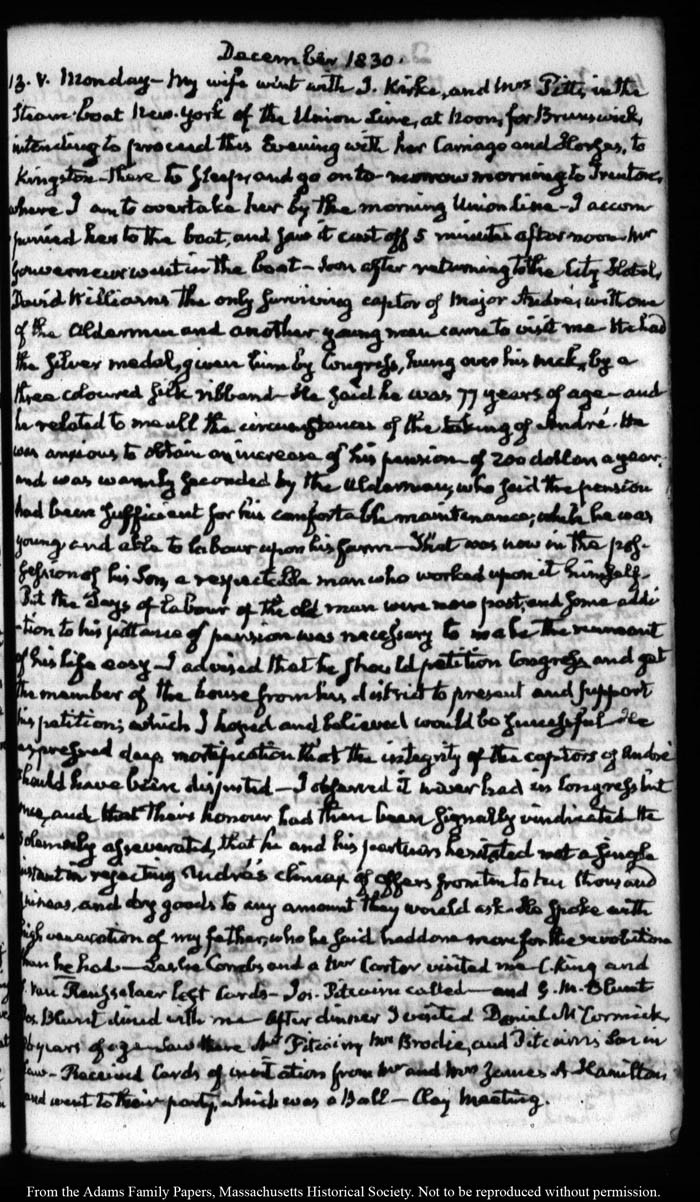 December 1830.
13. V. Monday – My wife went with I. Kirke, and Mrs Pitts, in the
Steam-boat New-York of the Union Line, at Noon, for Brunswick,
intending to proceed this Evening with her Carriage and Horses, to
Kingston – there to sleep, and go on to-morrow morning to Trenton,
where I am to overtake her by the morning Union line – I accom
panied her to the boat, and saw it cast off 5 minutes after noon. Mr
Gouverneur went in the boat – Soon after returning to the City Hotel,
David Williams the only surviving captor of Major André, with one
of the Aldermen and another young man came to visit me. He had
the silver medal, given him by Congress, hung over his neck, by a
three coloured silk ribband – He said he was 77 years of age – and
he related to me all the circumstances of the taking of André. He
was anxious to obtain an increase of his pension of 200 dollars a year,
and was warmly seconded by the Alderman, who said the pension
had been sufficient for his comfortable maintenance, while he was
young and able to labour upon his farm – That was now in the pos-
session of his Son, a respectable man who worked upon it himself.
But the days of labour of the old man were now past, and some addi
-tion to his pittance of pension was necessary to make the remnant
of his life easy – I advised that he should petition Congress and get
the member of the house from his district to present and support
his petition; which I hoped and believed would be successful – He
expressed deep mortification that the integrity of the captors of André
should have been disputed – I observed it never had in Congress but
once, and that their honour had then been signally vindicated. He
solemnly asseverated, that he and his partners hesitated not a single
instant in rejecting André's climax of offers from ten to ten thousand
guineas, and dry goods to any amount they would ask. He spoke with
high veneration of my father, who he said had done more for the revolution
than he had. – Leslie Combs and a Mr Carter visited me C. King and
Van Rensselaer left Cards – Jos. Pitcairn called – and G. M. Blunt
Jos. Blunt dined with me – After dinner I visited Daniel McCormick,
years of age – Saw there Pitcairn, Mr Brodie, and Pitcairn's Son in
Law – Received Cards of invitation from Mr and Mrs James A Hamilton
and went to their party, which was a Ball – Clay Meeting.
From the Adams Family Papers, Massachusetts Historical Society. Not to be reproduced without permission.